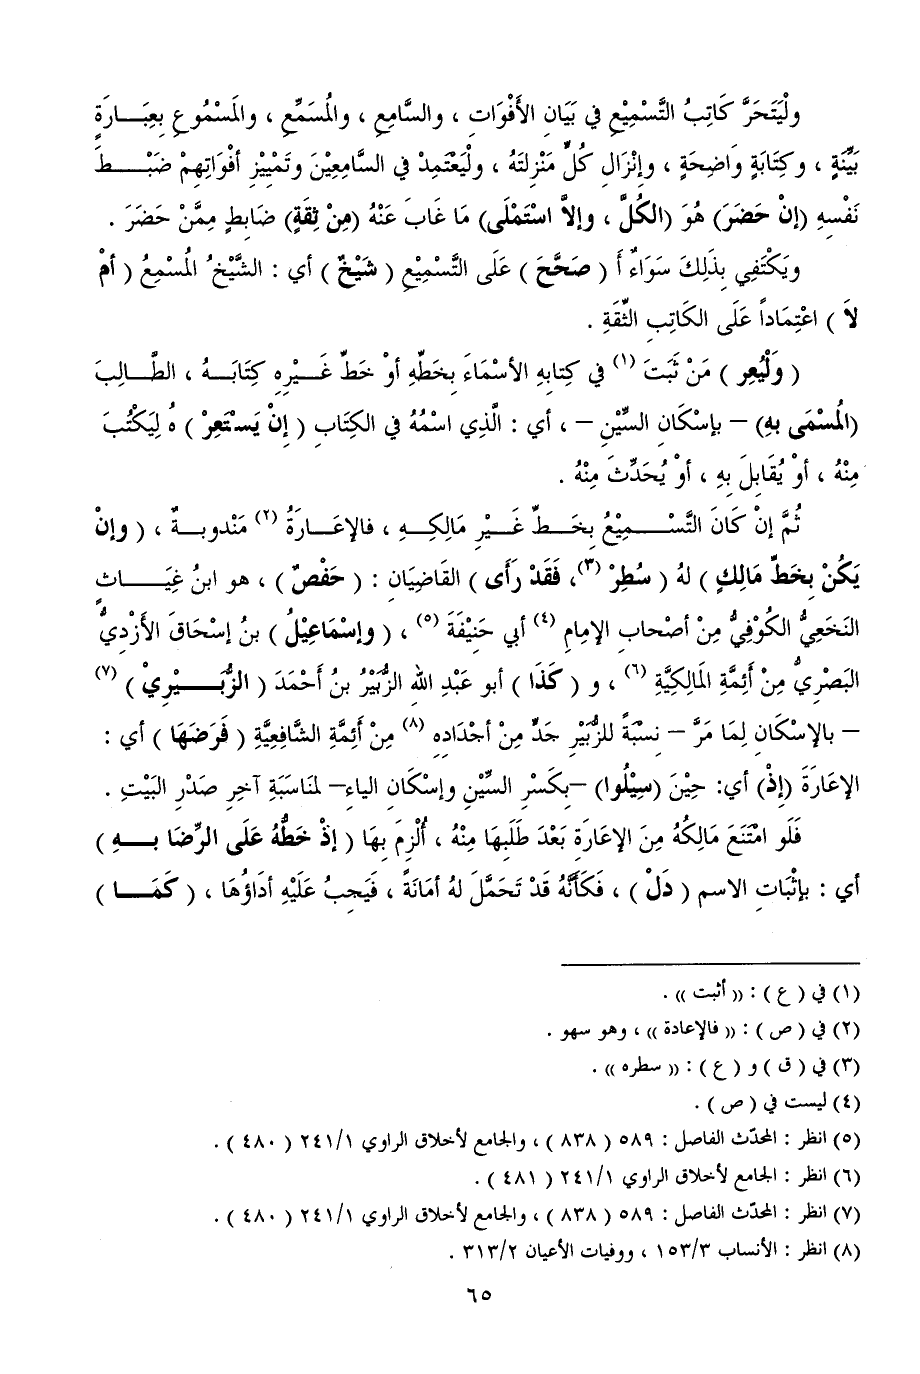 ولْيَتَحَرَّ كَاتِبُ التَّسْمِيْعِ في بَيَانِ الأَفْوَاتِ ، والسَّامِعِ ، والمُسَمِّعِ ، والمَسْمُوعِ بِعِبَــارَةٍ
بَيِّنَةٍ ، وكِتَابَةٍ وَاضِحَةٍ ، وإنْزَالِ كُلٍّ مَنْزِلتَهُ ، ولْيَعْتَمِدْ في السَّامِعِيْنَ وتَمْيِيْزِ أَفْوَاتِهِمْ ضَبْــطَ
نَفْسِهِ (إنْ حَضَرَ) هُوَ (الكُلَّ ، وإلاَّ اسْتَمْلَى) مَا غَابَ عَنْهُ (مِنْ ثِقَةٍ) ضَابِطٍ مِمَّنْ حَضَرَ .
ويَكْتَفِي بِذَلِكَ سَوَاءٌ أَ ( صَحَّحَ ) عَلَى التَّسْمِيْعِ ( شَيْخٌ ) أي : الشَّيْخُ المُسْمِعُ ( أمْ
لاَ ) اعْتِمَاداً عَلَى الكَاتِبِ الثِّقَةِ .
( وَلْيُعِرِ ) مَنْ ثَبَتَ (١) في كِتابِهِ الأسْمَاءَ بِخَطِّهِ أوْ خَطِّ غَــيْرِهِ كِتَابَــهُ ، الطَّــالِبَ
(المُسْمَى بِهِ) – بإسْكَانِ السِّيْنِ – ، أي : الَّذِي اسْمُهُ في الكِتَابِ ( إنْ يَسْتَعِرْ ) هُ لِيَكْتُبَ
مِنْهُ ، أوْ يُقَابِلَ بِهِ ، أوْ يُحَدِّثَ مِنْهُ .
ثُمَّ إنْ كَانَ التَّسْــمِيْعُ بِخَــطِّ غَــيْرِ مَالِكِــهِ ، فالإعَــارَةُ (٢) مَنْدوبــةٌ ، ( وإنْ
يَكُنْ بِخَطِّ مَالِكٍ ) لهُ ( سُطِرْ (٣)، فَقَدْ رَأَى ) القَاضِيَان : ( حَفْصٌ ) ، هو ابنُ غِيَــاثٍ
النَخَعِيُّ الكُوْفِيُّ مِنْ أصْحابِ الإمامِ (٤) أبي حَنِيْفَةَ (٥) ، ( وإسْمَاعِيْلُ ) بنُ إسْحَاقَ الأَزْدِيُّ
البَصْرِيُّ مِنْ أَئِمَّةِ المَالِكِيَّةِ (٦) ، و ( كَذَا ) أبو عَبْدِ اللهِ الزُّبَيْرُ بنُ أَحْمَدَ ( الزُّبَــيْرِيْ ) (٧)
– بالإسْكَانِ لِمَا مَرَّ – نِسْبَةً للزُّبَيْرِ جَدٍّ مِنْ أجْدَادِهِ (٨) مِنْ أئِمَّةِ الشَّافِعِيَّةِ ( فَرَضَهَا ) أي :
الإعَارَةَ (إذْ) أي: حِيْنَ (سِيْلُوا) –بِكَسْرِ السِّيْنِ وإسْكَانِ الياءِ– لمنَاسَبَةِ آخِرِ صَدْرِ البَيْتِ .
فَلَو امْتَنَعَ مَالِكُهُ مِنَ الإعَارَةِ بَعْدَ طَلَبِهَا مِنْهُ ، أُلْزِمَ بِهَا ( إذْ خَطُّهُ عَلَى الرِّضَا بِــهِ )
أي : بإثْبَاتِ الاسمِ ( دَلْ ) ، فَكَأَنَّهُ قَدْ تَحَمَّلَ لهُ أمَانَةً ، فَيَجِبُ عَلَيْهِ أدَاؤُهَا ، ( كَمَــا )
(١) في ( ع ) : (( أثبت )) .
(٢) في ( ص ) : (( فالإعادة )) ، وهو سهو .
(٣) في ( ق ) و ( ع ) : (( سطره )) .
(٤) ليست في ( ص ) .
(٥) انظر : المحدّث الفاصل : ٥٨٩ ( ٨٣٨ ) ، والجامع لأخلاق الراوي ٢٤١/١ ( ٤٨٠ ) .
(٦) انظر : الجامع لأخلاق الراوي ٢٤١/١ ( ٤٨١ ) .
(٧) انظر : المحدّث الفاصل : ٥٨٩ ( ٨٣٨ ) ، والجامع لأخلاق الراوي ٢٤١/١ ( ٤٨٠ ) .
(٨) انظر : الأنساب ١٥٣/٣ ، ووفيات الأعيان ٣١٣/٢ .
٦٥